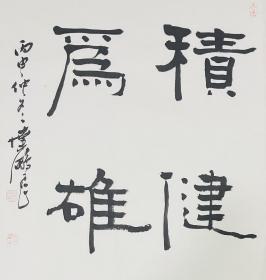 積健
為雄
丙申仲冬